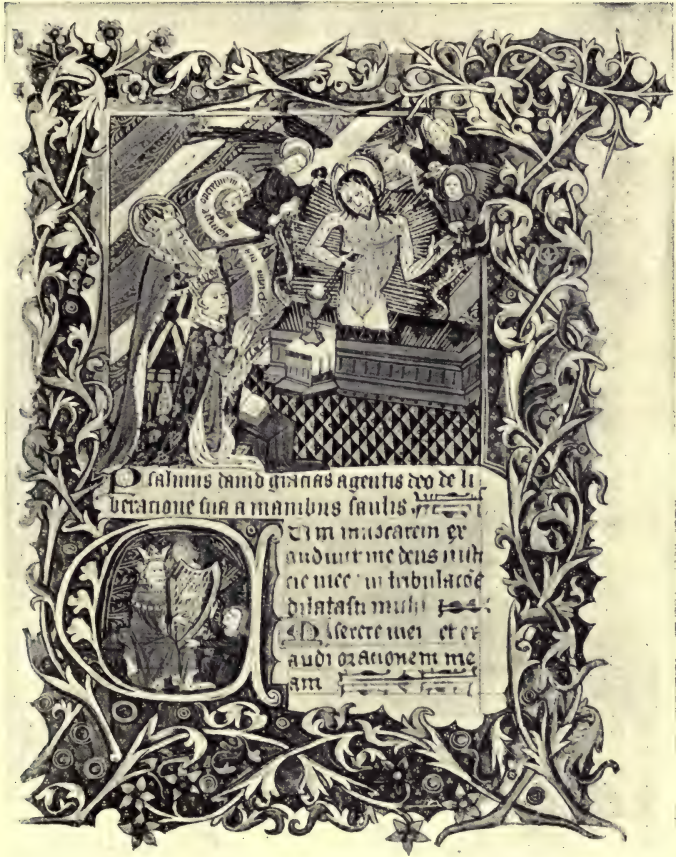 Psalmus david gracias agentis deo de li
beracione sua a manibus saulis
CUm invocarem ex
audivit me deus iusti
cie mee in tribulacoē
dilatasti michi
Miserere mei et ex
audi orationem me
am